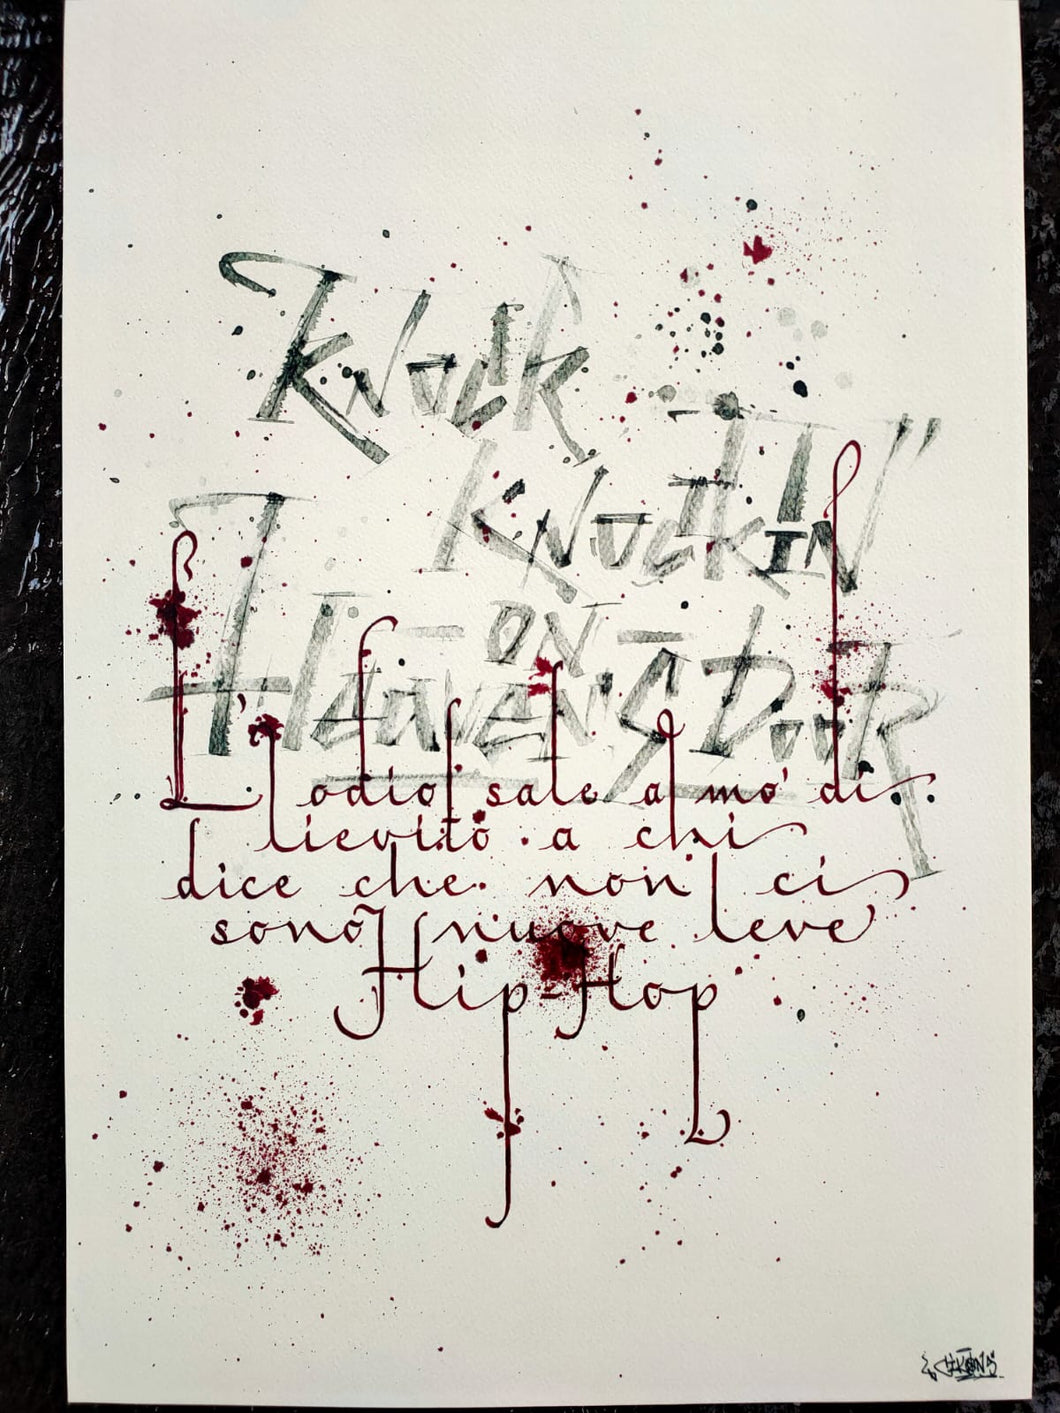 KNOCK
KNOCKIN"
ON
HEAVEN'S DOOR
L'odio sale a mo' di
lievito a chi
dice che non ci
sono nuove leve
Hip-Hop